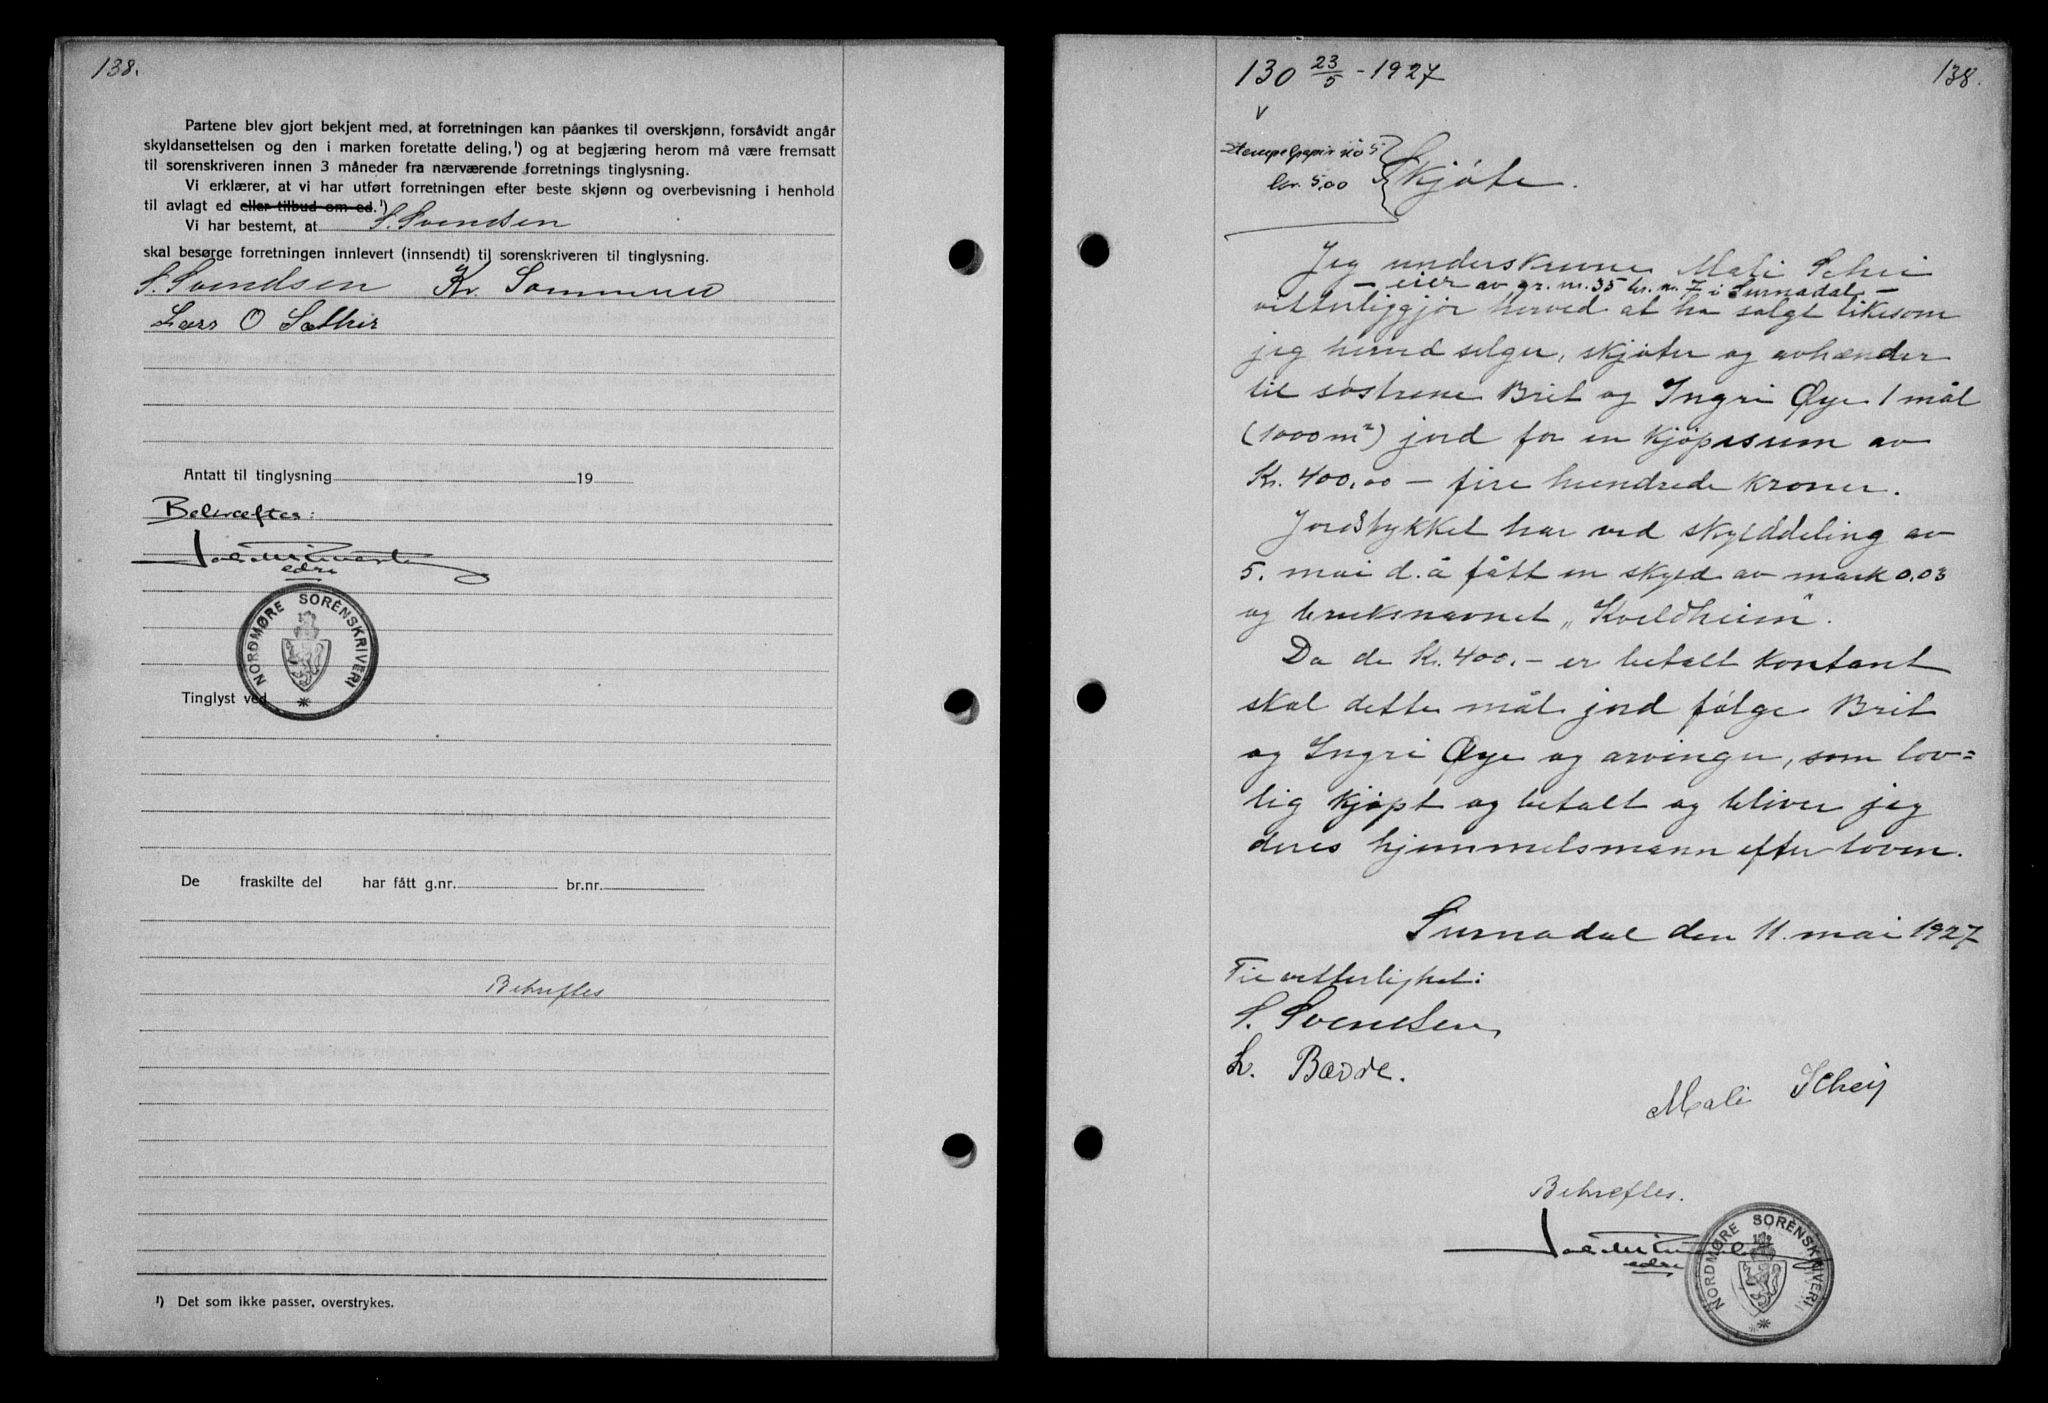 138.
Partene blev gjort bekjent med, at forretningen kan påankes til overskjønn, forsåvidt angår
skyldansettelsen og den i marken foretatte deling,¹) og at begjæring herom må være fremsatt
til sorenskriveren innen 3 måneder fra nærværende forretnings tinglysning.
Vi erklærer, at vi har utført forretningen efter beste skjønn og overbevisning i henhold
til avlagt ed eller tilbud om ed.¹)
Vi har bestemt, at S. Svendsen
skal besørge forretningen innlevert (innsendt) til sorenskriveren til tinglysning.
S. Svendsen Kr.
Lars O Sæther
Antatt til tinglysning 19
Bekræftes:
edre
NORDMØRE SORENSKRIVERI
Tinglyst ved
De fraskilte del har fått g.nr. br.nr.
Bekreftes
¹) Det som ikke passer, overstrykes.
130 23/5 - 1927
138.
v
Stempelpapir no 5
kr. 5,00
Skjøte.
Jeg underskrevne Mali Schei
- eier av gr. nr. 35 br. nr. 7 i Surnadal -
vitterliggjør herved at ha solgt likesom
jeg herved selger, skjøter og avhænder
til søstrene Brit og Ingri Øye 1 mål
(1000 m²) jord for en kjøpesum av
Kr. 400,00 - fire hundrede kroner.
Jordstykket har ved skylddeling av
5. mai d. å fått en skyld av mark 0.03
og bruksnavnet „Kveldheim".
Da de Kr. 400.- er betalt kontant
skal dette mål jord følge Brit
og Ingri Øye og arvinger, som lov=
lig kjøpt og betalt og bliver jeg
deres hjemmelsmann efter loven.
Surnadal den 11. mai 1927
Til vitterlighet:
S. Svendsen
L. Bævre.
Mali Schei
Bekreftes.
edre
NORDMØRE SORENSKRIVERI